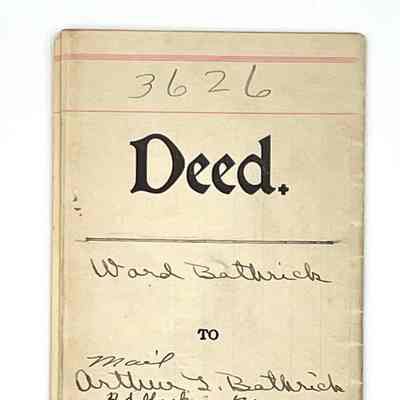 3626
Deed.
Ward Bathrick
TO
Mail
Arthur L. Bathrick